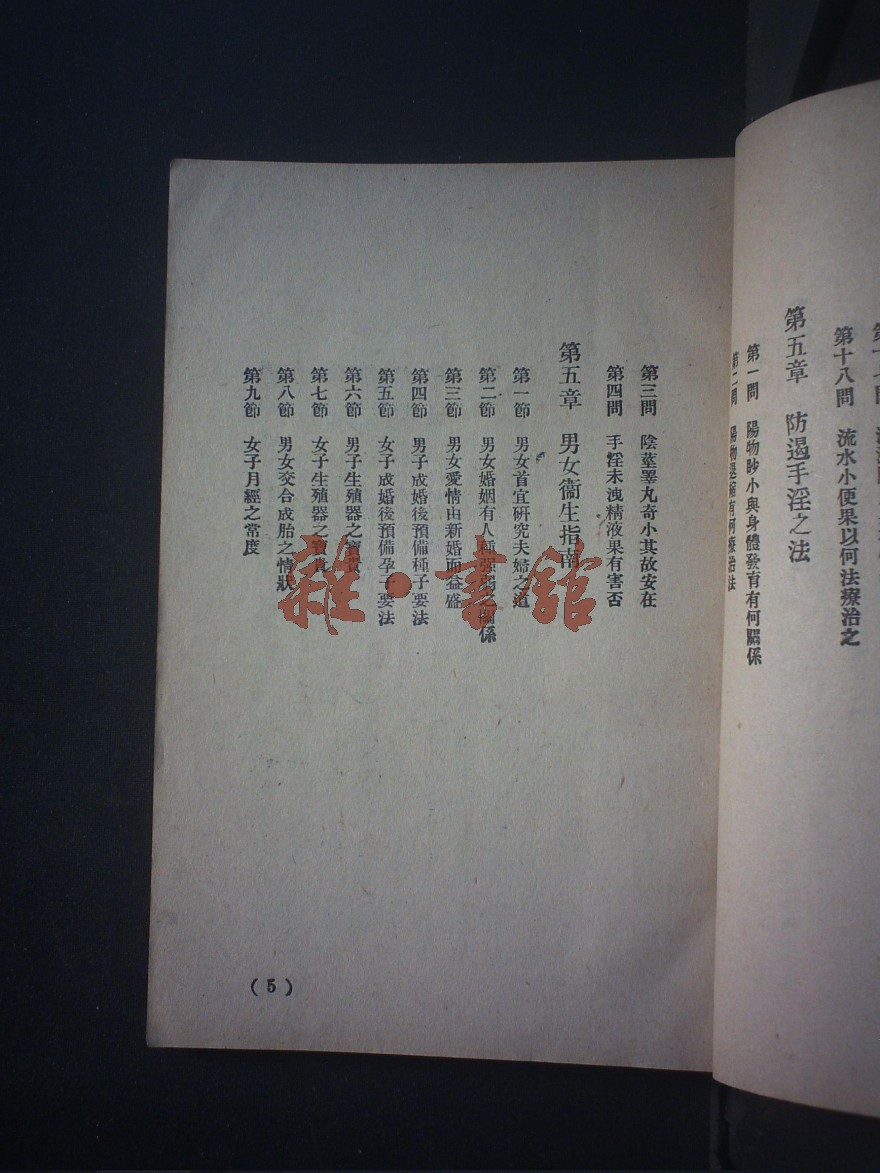 第十八問　流水小便果以何法療治之
第五章　防遏手淫之法
第一問　陽物眇小與身體發育有何關係
第二問　陽物退縮有何療治法
第三問　陰莖睪丸奇小其故安在
第四問　手淫未洩精液果有害否
第五章　男女衞生指南
第一節　男女首宜研究夫婦之道
第二節　男女婚姻有人種强弱之關係
第三節　男女愛情由新婚而益盛
第四節　男子成婚後預備種子要法
第五節　女子成婚後預備孕子要法
第六節　男子生殖器之寶貴
第七節　女子生殖器之寶貴
第八節　男女交合成胎之情狀
第九節　女子月經之常度
(5)
雜·書館